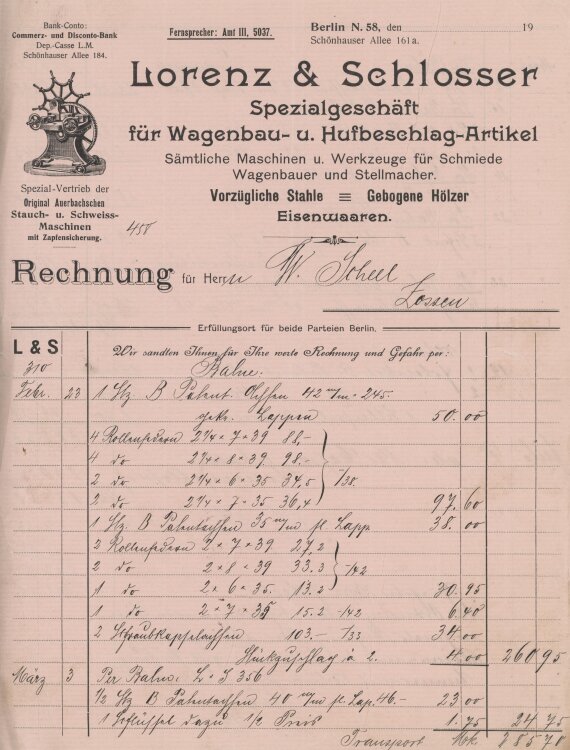 Bank-Conto:
Commerz- und Disconto-Bank
Dep.-Casse L.M.
Schönhauser Allee 184.
Fernsprecher: Amt III, 5037.
Berlin N. 58, den 19
Schönhauser Allee 161a.
Lorenz & Schlosser
Spezialgeschäft
für Wagenbau- u. Hufbeschlag-Artikel
Sämtliche Maschinen u. Werkzeuge für Schmiede
Wagenbauer und Stellmacher.
Vorzügliche Stahle = Gebogene Hölzer
Eisenwaaren.
Spezial-Vertrieb der
Original Auerbachschen
Stauch- u. Schweiss-
Maschinen
mit Zapfensicherung.
450
Rechnung für Herrn W. Scheel
Zossen
Erfüllungsort für beide Parteien Berlin.
L & S
Wir sandten Ihnen für Ihre werte Rechnung und Gefahr per:
310 Bahn:
Febr. 23 1 Stz B Patent Achsen 42 m/m = 245.
gekr. Lappen 50.00
4 Rollenfedern 2¼ × 7 × 39 88,-
4 do 2¼ × 8 × 39 98.-
2 do 2¼ × 6 × 35 34,5
2 do 2¼ × 7 × 35 36,4 /38. 97.60
1 Stz. B Patentachsen 35 m/m fl Lapp 38.00
2 Rollenfedern 2 × 7 × 39 27,2
2 do 2 × 8 × 39 33.3
1 do 2 × 6 × 35. 13.2 /42 30.95
1 do 2 × 7 × 35 15.2 - /42 6.40
2 Schraubkapselachsen 103.- /33 34.00
Stückzuschlag à 2. 4.00 260.95
März 3 Per Bahn: L & S 356
½ Stz B Patentachsen 40 m/m fl. Lap. 46.- 23.00
1 Schlüssel dazu ½ Preis 1.75 24.75
Transport Mk. 285.70